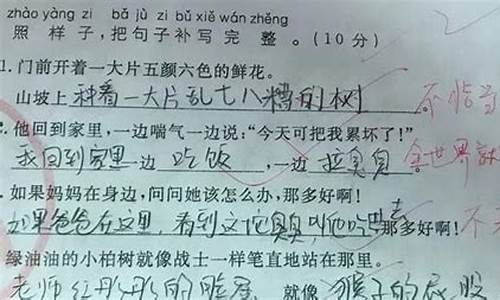 zhào yàng zi bǎ jù zi bǔ xiě wán zhěng
照样子,把句子补写完整。(10分)
1.门前开着一大片五颜六色的鲜花。
山坡上种着一大片乱七八糟的树 不恰当
他回到家里,一边喘气一边说:“今天可把我累坏了!”
我回到家里一边吃饭,一边拉臭臭。全世界
.如果妈妈在身边,问问她该怎么办,那多好啊!
如果爸爸在这里,看到这坨臭臭叫他吃 去 那多好啊! 不
绿油油的小柏树就像战士一样笔直地站在那里。
老师红彤彤的脸 就像猴子的屁股